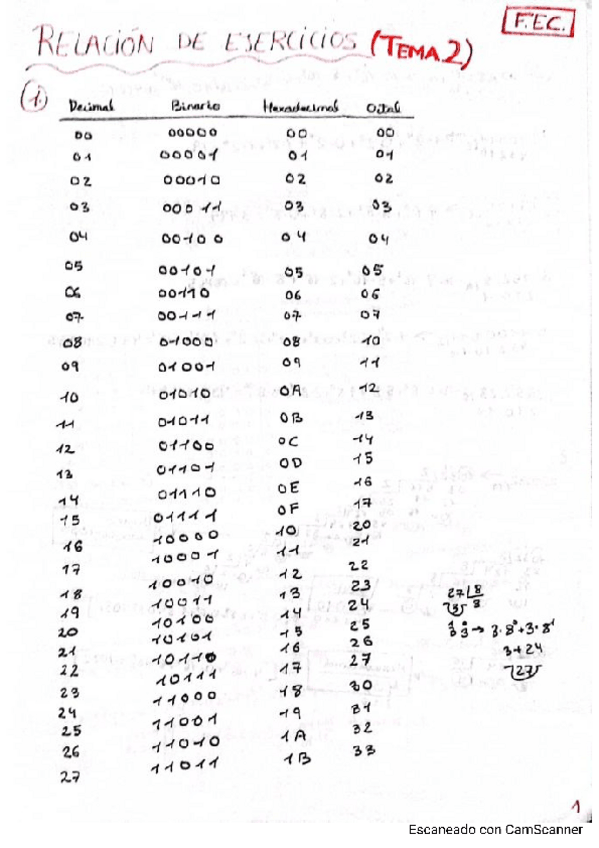 F.EC.
RELACIÓN DE EJERCICIOS (TEMA 2)
1.
Decimal Binario Hexadecimal Octal
00 00000 00 00
01 00001 01 01
02 00010 02 02
03 00011 03 03
04 00100 04 04
05 00101 05 05
06 00110 06 06
07 00111 07 07
08 01000 08 10
09 01001 09 11
10 01010 0A 12
11 01011 0B 13
12 01100 0C 14
13 01101 0D 15
14 01110 0E 16
15 01111 0F 17
16 10000 10 20
17 10001 11 21
18 10010 12 22
19 10011 13 23
20 10100 14 24
21 10101 15 25
22 10110 16 26
23 10111 17 27
24 11000 18 30
25 11001 19 31
26 11010 1A 32
27 11011 1B 33
27 8
3 3
1 0
3 3 → 3·8⁰+3·8¹
3+24
27
1
Escaneado con CamScanner